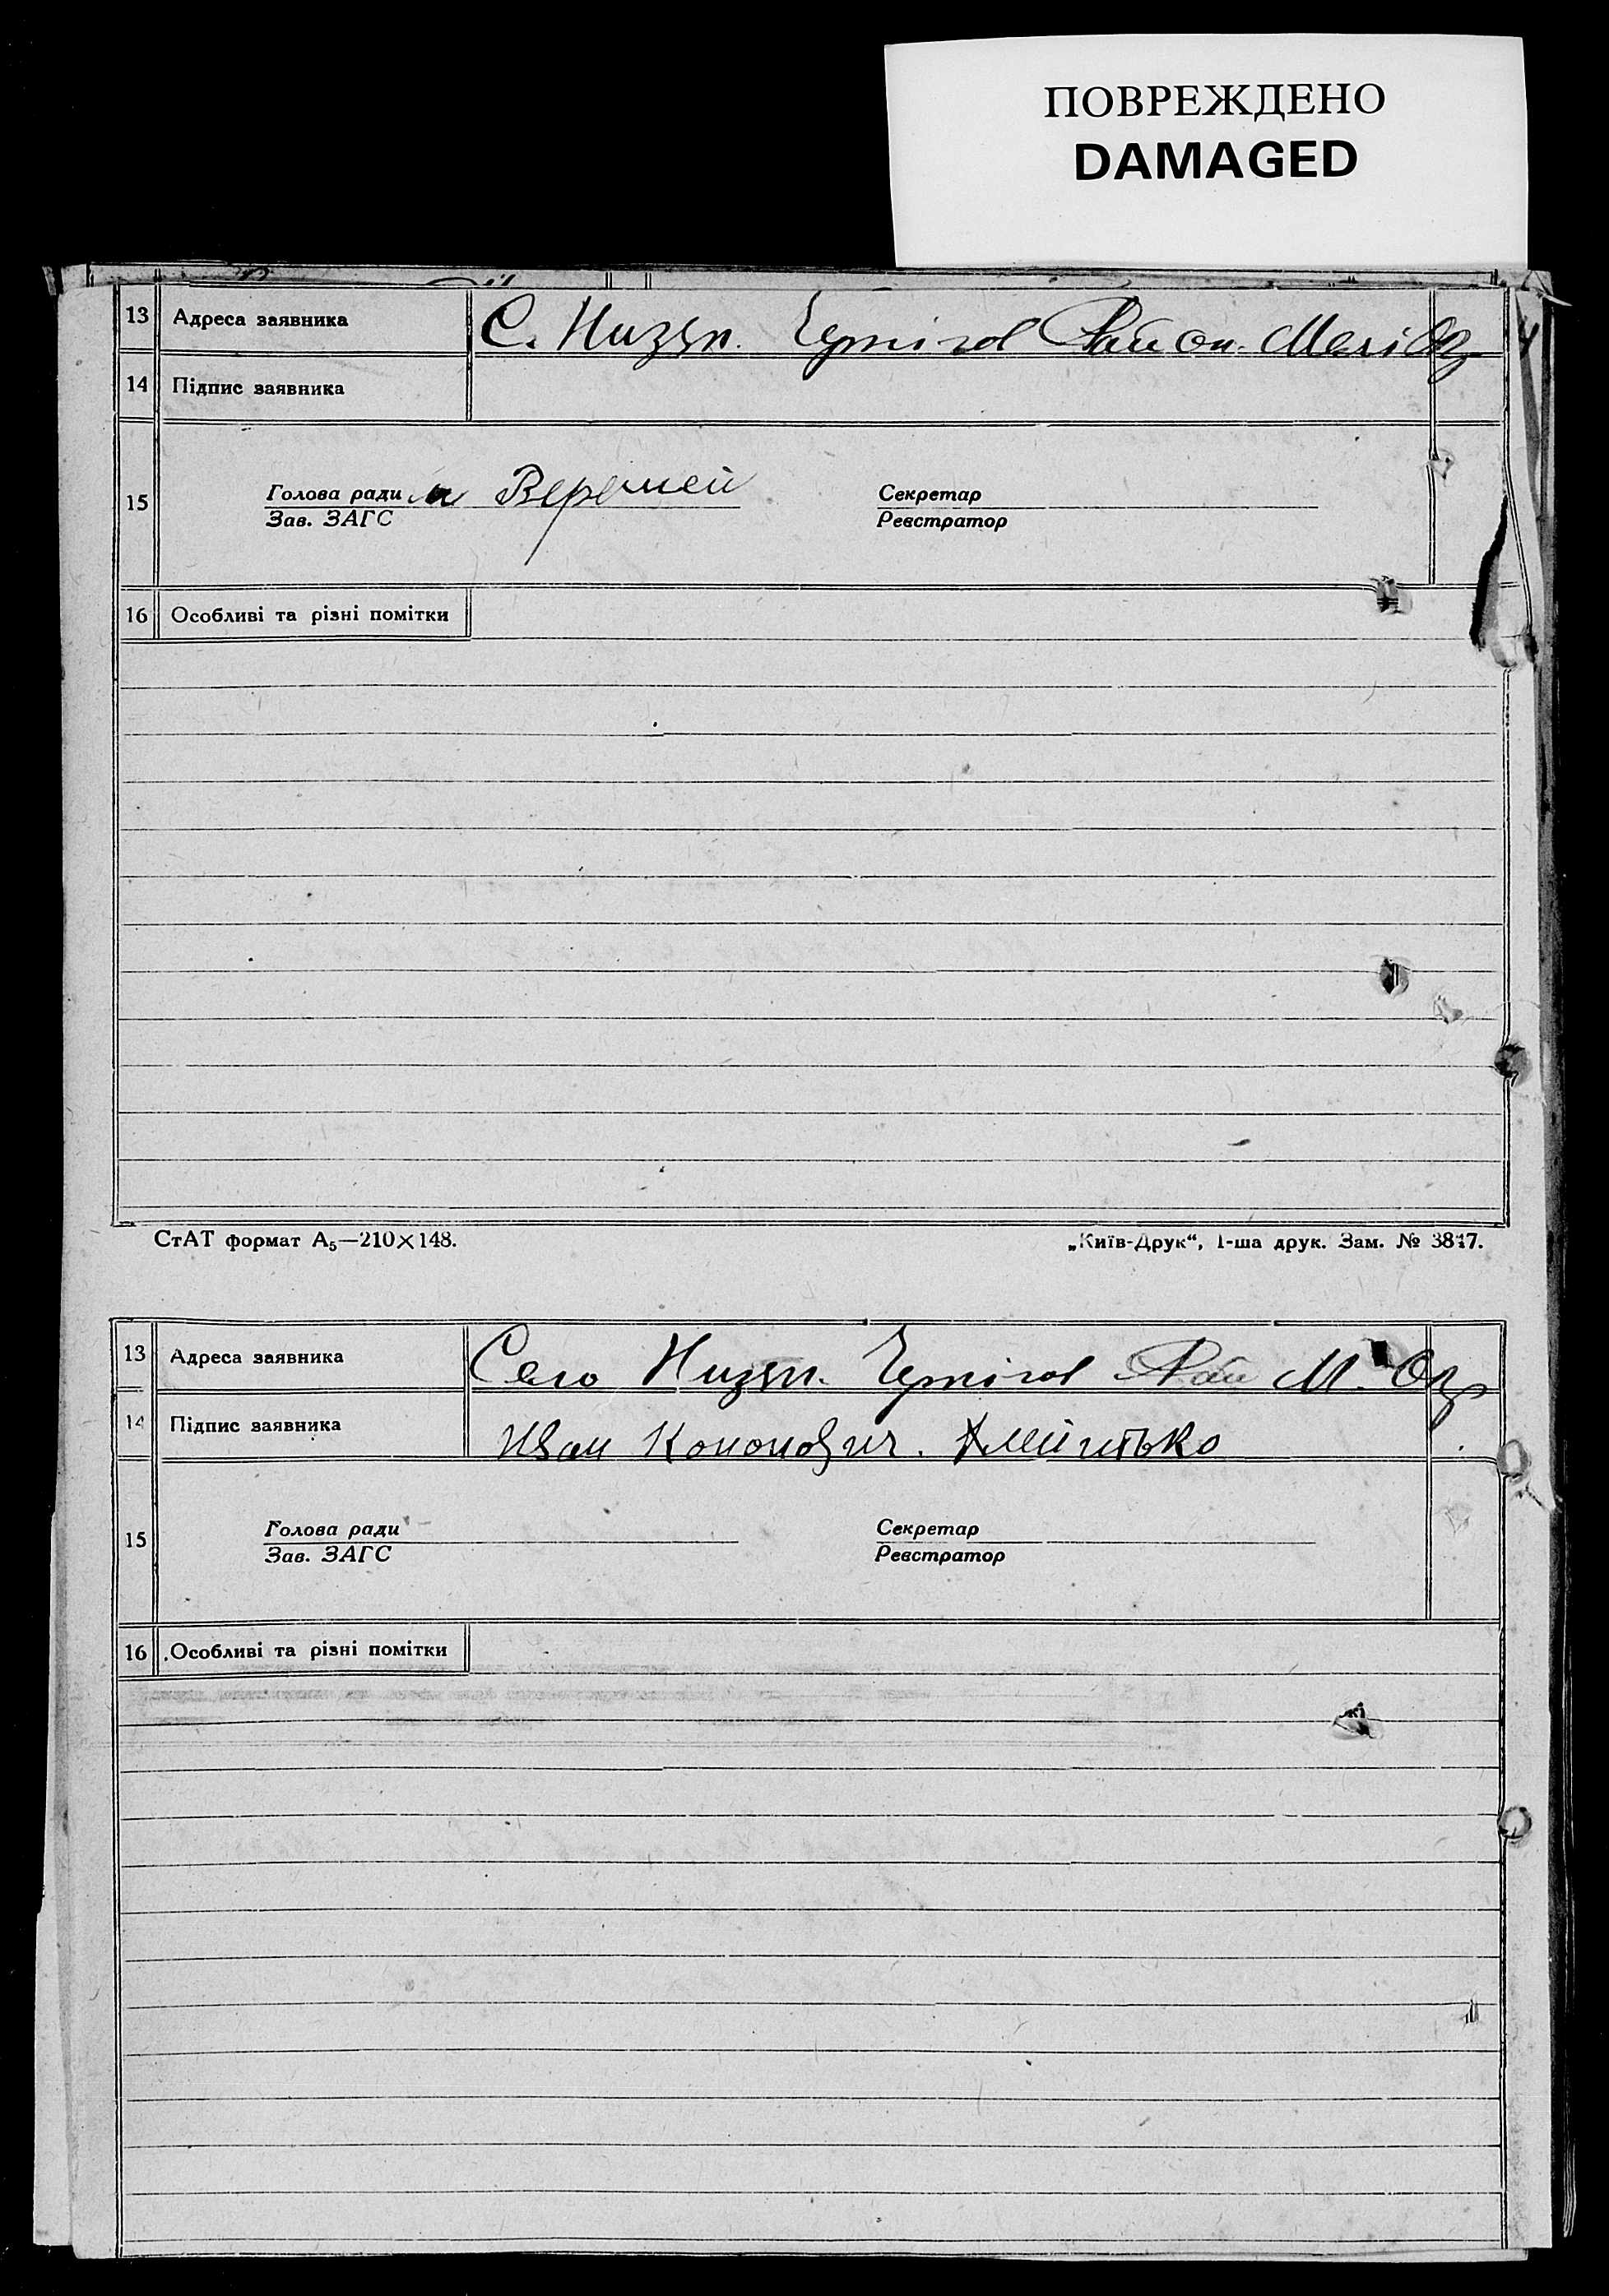 ПОВРЕЖДЕНО
DAMAGED
13 Адреса заявника С. Низян. Чернігов Район. Меліт
14 Підпис заявника
15 Голова ради Веремей Секретар
Зав. ЗАГС Реєстратор
16 Особливі та різні помітки
СтАТ формат А₅—210×148. „Київ-Друк“, 1-ша друк. Зам. № 3847.
13 Адреса заявника Село Низян. Чернігов Рай М.
14 Підпис заявника Иван Кононович.
15 Голова ради Секретар
Зав. ЗАГС Реєстратор
16 Особливі та різні помітки